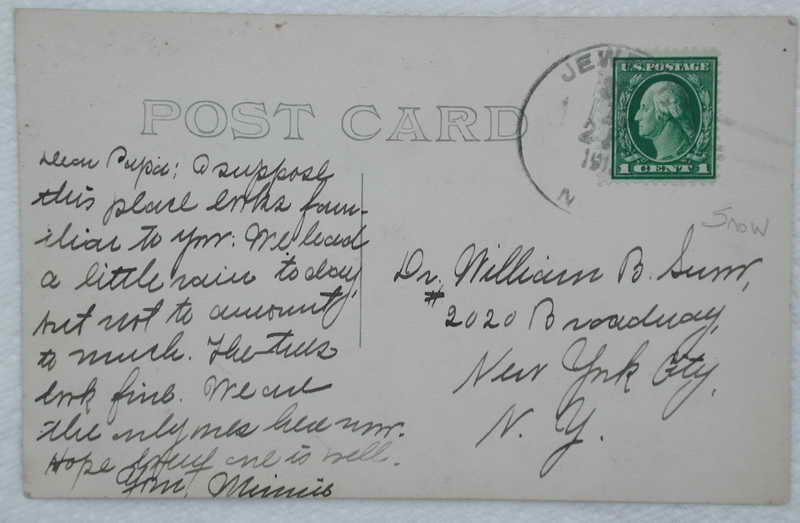 POST CARD
JEWE
191
N
U.S. POSTAGE
1 CENT 1
Snow
Dear Papa: I suppose
this place looks fam-
iliar to you. We had
a little rain today,
but not to amount
to much. The trees
look fine. We are
the only ones here now.
Hope every one is well.
Your, Minnie
Dr. William B.
# 2020 Broadway,
New York City,
N. Y.